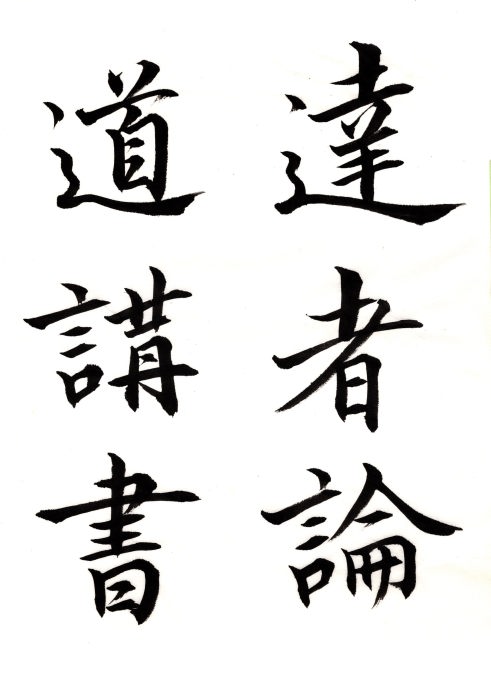 達者論
道講書